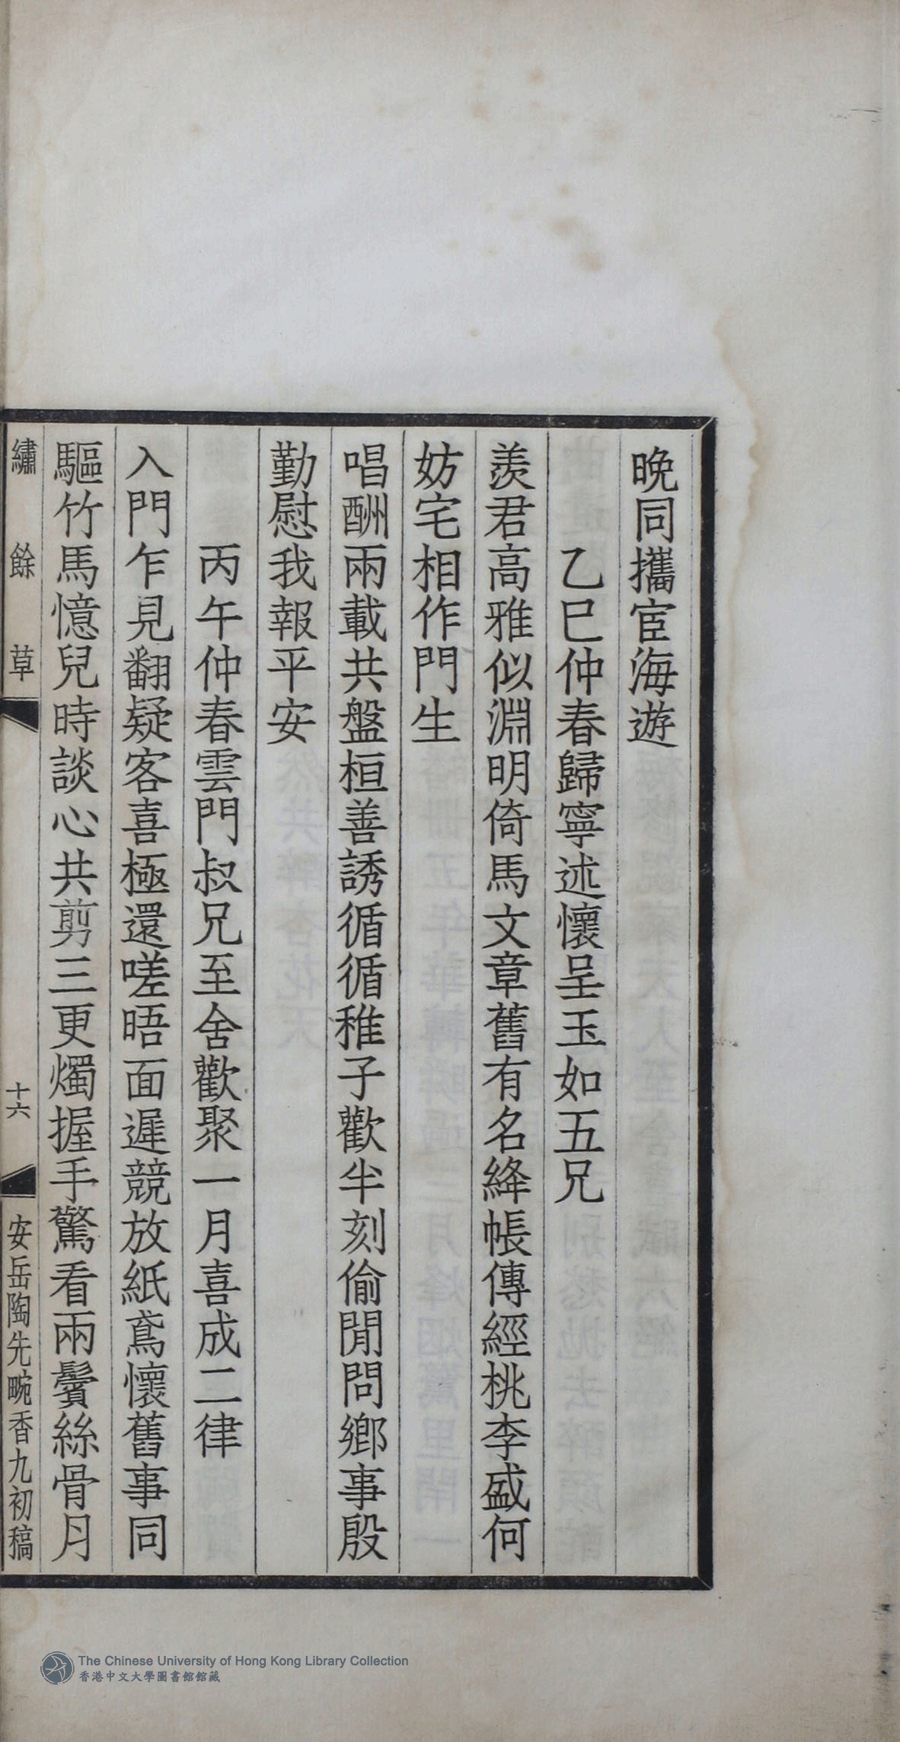 晚同攜宦海遊
乙巳仲春歸寧述懷呈玉如五兄
羨君高雅似淵明倚馬文章舊有名絳帳傳經桃李盛何
妨宅相作門生
唱酬兩載共盤桓善誘循循稚子歡半刻偷閒問鄉事殷
勤慰我報平安
丙午仲春雲門叔兄至舍歡聚一月喜成二律
入門乍見翻疑客喜極還嗟晤面遲競放紙鳶懷舊事同
驅竹馬憶兒時談心共剪三更燭握手驚看兩鬢絲骨月
繡餘草
十六
安岳陶先畹香九初稿
The Chinese University of Hong Kong Library Collection
香港中文大學圖書館館藏